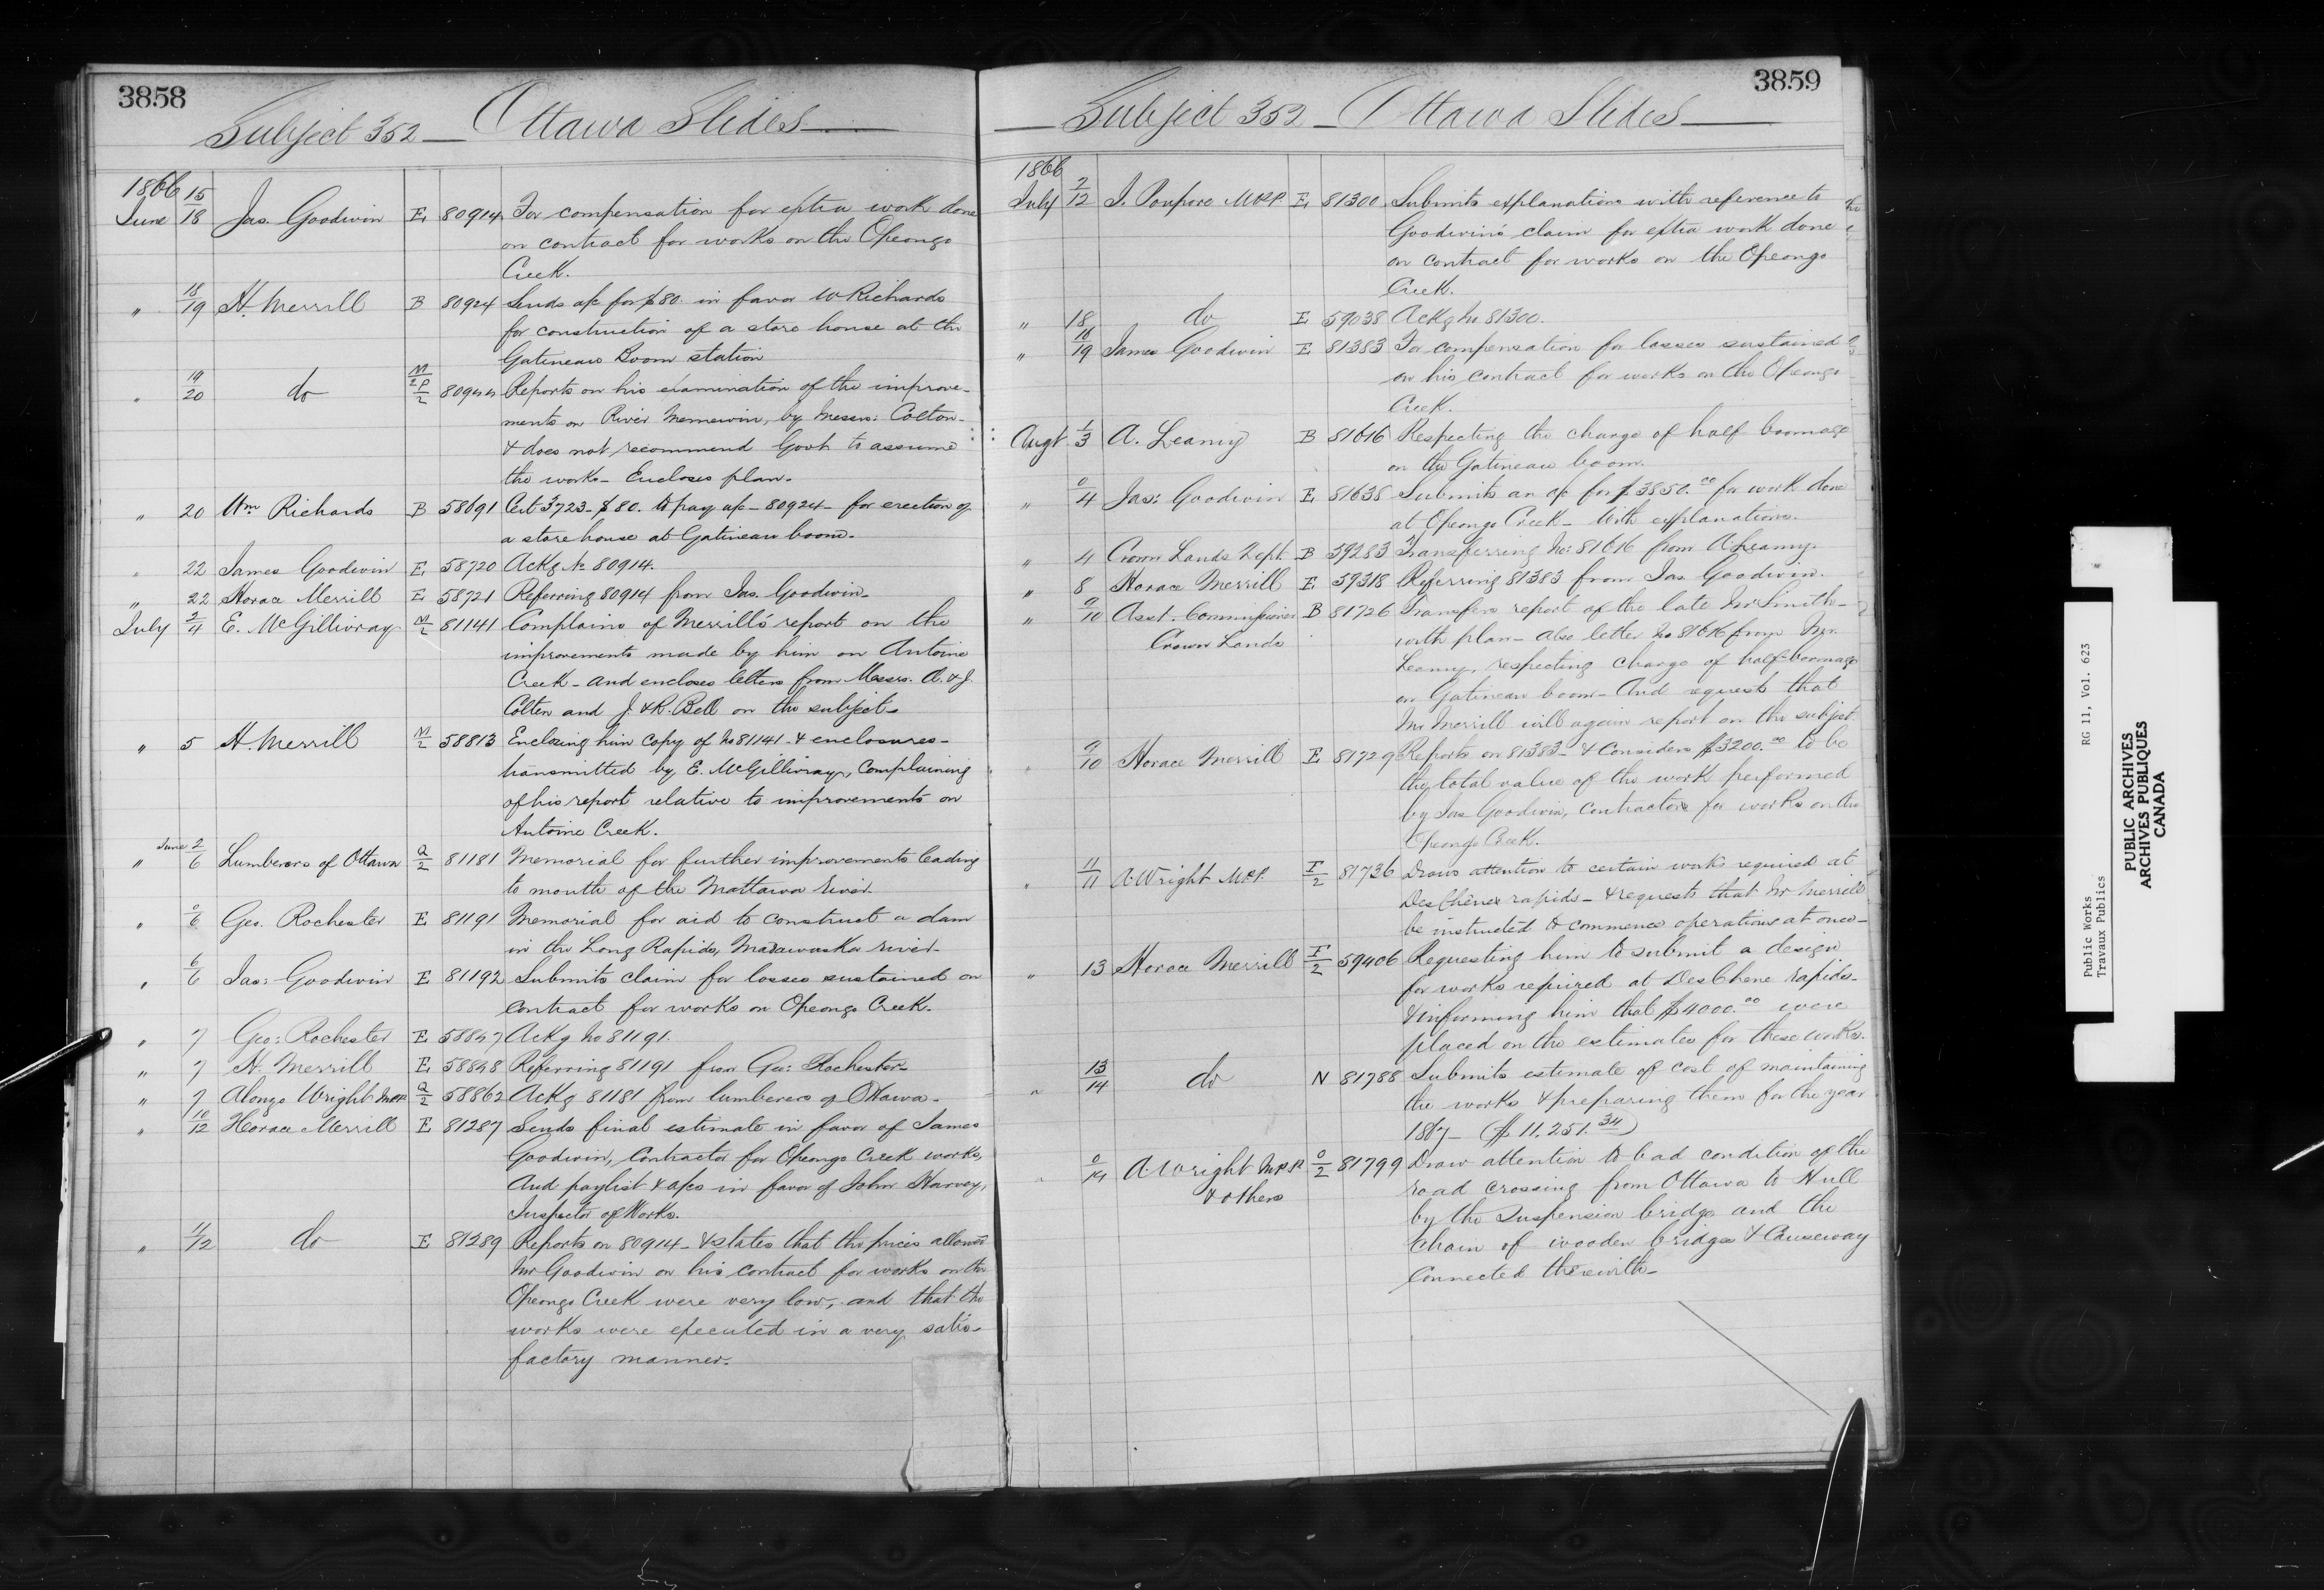 3858
Subject 352 — Ottawa Slides —
1866
June 15/18 Jas. Goodwin E 80914 For compensation for extra work done
on contract for works on the Opeongo
Creek.
" 18/19 H. Merrill B 80924 Sends a/c for $80. in favor W Richards
for construction of a store house at the
Gatineau Boom station
" 19/20 do 80944 Reports on his examination of the improve-
ments on River by Messrs: Colton-
& does not recommend Govt. to assume
the works - Encloses plan.
" 20 Wm Richards B 58691 Cert 3723 - $80. to pay a/c - 80924 - for erection of
a store house at Gatineau boom.
" 22 James Goodwin E 58720 Ackg No 80914.
" 22 Horace Merrill E 58721 Referring 80914 from Jas. Goodwin.
July 3/4 E. McGillivray M/2 81141 Complains of Merrill's report on the
improvements made by him on Antoine
Creek - and encloses letters from Messrs. A. & J.
Colten and J. & R. Bell on the subject.
" 5 H. Merrill M/2 58813 Enclosing him copy of No 81141 - & enclosures -
transmitted by E. McGillivray, Complaining
of his report relative to improvements on
Antoine Creek.
" June 2/6 Lumberers of Ottawa Q/2 81181 Memorial for further improvements leading
to mouth of the Mattawa river.
" 0/6 Geo. Rochester E 81191 Memorial for aid to construct a dam
in the Long Rapids, Madawaska river.
" 6/6 Jas: Goodwin E 81192 Submits claim for losses sustained on
contract for works on Opeongo Creek.
" 7 Geo: Rochester E 58847 Ackg No 81191.
" 7 H. Merrill E 58848 Referring 81191 from Geo: Rochester-
" 7 Alonzo Wright MPP Q/2 58862 Ackg 81181 from lumberers of Ottawa -
" 10/12 Horace Merrill E 81287 Sends final estimate in favor of James
Goodwin, Contractor for Opeongo Creek works,
And paylist & a/cs in favor of John Harvey,
Inspector of Works.
" 11/12 do E 81289 Reports on 80914 - & states that the prices allowed
Mr Goodwin on his contract for works on the
Opeongo Creek were very low, and that the
works were executed in a very satis-
factory manner.
3859
— Subject 352 — Ottawa Slides —
1866
July 2/12 J. Poupore MPP. E 81300 Submits explanations with reference to
Goodwin's claim for extra work done
on contract for works on the Opeongo
Creek.
" 18 do E 59038 Ackg No 81300.
" 16/19 James Goodwin E 81383 For compensation for losses sustained
on his contract for works on the Opeongo
Creek.
Augt 1/3 A. Leamy B 81616 Respecting the charge of half boomage
on the Gatineau boom.
" 0/4 Jas: Goodwin E 81638 Submits an a/c for $3850.00 for work done
at Opeongo Creek - With explanations.
" 4 Crown Lands Dept. B 59283 Transferring No: 81616 from A. Leamy.
" 8 Horace Merrill E 59318 Referring 81383 from Jas Goodwin.
" 9/10 Asst. Commissioner B 81726 Transfers report of the late Mr Smith -
Crown Lands with plan - also letter No 81616 from Mr.
Leamy, respecting charge of half-boomage
on Gatineau boom - And requests that
Mr Merrill will again report on the subject.
" 9/10 Horace Merrill E 81729 Reports on 81383 - & Considers $3200.00 to be
the total value of the work performed
by Jas Goodwin, Contractor for works on the
Opeongo Creek.
" 11/11 A. Wright M.P.P. I/2 81736 Draws attention to certain work required at
DesChênes rapids - & requests that Mr Merrill
be instructed to commence operations at once -
" 13 Horace Merrill I/2 59406 Requesting him to submit a design
for works required at DesChene rapids -
& informing him that $4000.00 were
placed on the estimates for these works.
" 13/14 do N 81788 Submits estimate of cost of maintaining
the works & preparing them for the year
1867 - ($11,251.34)
" 0/14 A. Wright M.P.P. O/2 81799 Draw attention to bad condition of the
& others road crossing from Ottawa to Hull
by the Suspension bridge and the
Chain of wooden bridges & Causeway
Connected therewith -
Public Works
Travaux Publics
RG 11, Vol. 623
PUBLIC ARCHIVES
ARCHIVES PUBLIQUES
CANADA